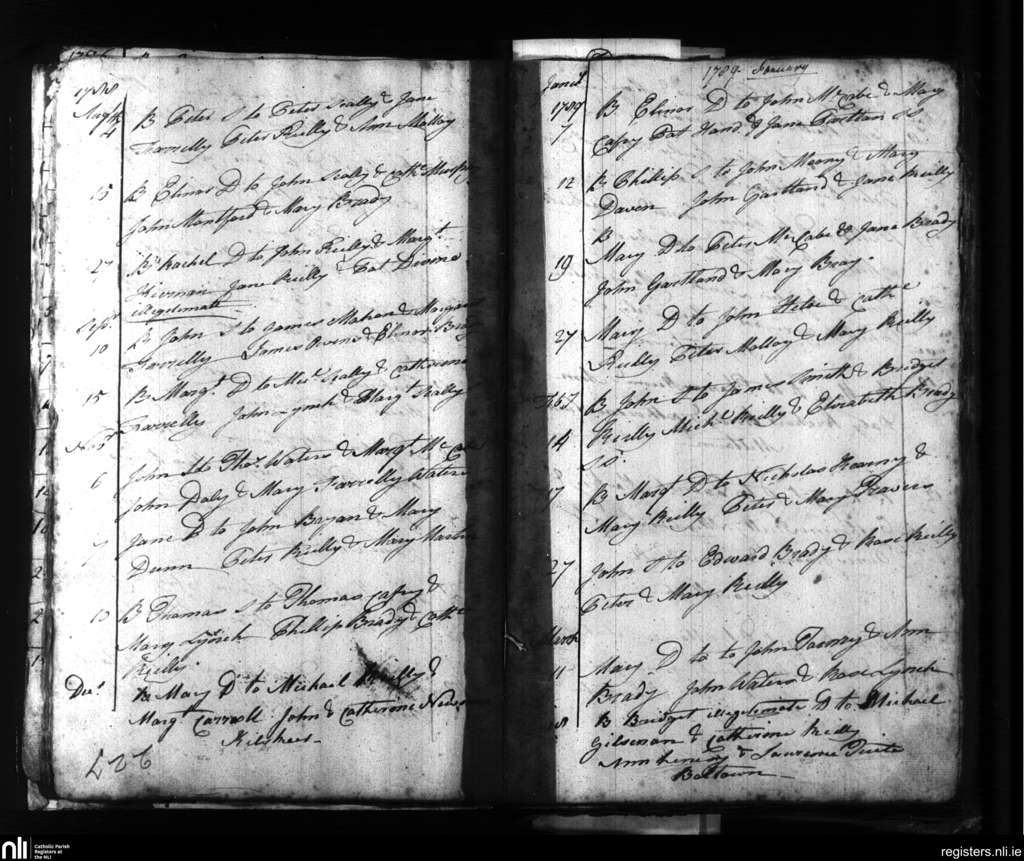 1788
Augt
4 B Peter S to Peter Scally & Jane
Farrelly Peter Reilly & Ann Molloy
15 B Elinor D to John Scally & Cath
John Montford & Mary Brady
27 B Rachel D to John Reilly & Margt
Kiernan Jane Reilly & Pat
illegitimate
Sepr
10 B John S to James Mahon & Margaret
Farrelly James Owens & Elinor Bray
15 B Margt D to Micl Scally & Catherine
Farrelly John Lynch & Margt Scally
Novr
6 John S to Thos Waters & Margt McCabe
John Daly & Mary Farrelly Waters
7 Jane D to John Bryan & Mary
Dunn Peter Reilly & Mary Martin
13 B Thomas S to Thomas Cafry &
Mary Lynch Phillip Brady & Cath
Reilly
Decr B Mary D to Michael Reilly &
Margt Carroll John & Catherine
Kilskeer
227
1789 January
Janry
1789
7 B Elinor D to John McCabe & Mary
Cafry Pat Hand & Jane Gartlan Ss
12 B Phillip S to John Meony & Mary
Daven John Gartland & Jane Reilly
B
19 Mary D to Peter McCabe & Jane Brady
John Gartland & Mary Bray
27 Mary D to John & Cathe
Reilly Peter Molloy & Mary Reilly
Feb
14 B John S to James Smith & Bridget
Reilly Michl Reilly & Elizabeth Brady
Ss
17 B Margt D to Nicholas Kearny &
Mary Reilly Peter & Mary Travers
27 John S to Edward Brady & Rose Reilly
Peter & Mary Reilly
March
11 Mary D to to John Tormy & Ann
Brady John Waters & Rose Lynch
18 B Bridget illegitimate D to Michael
Gilsenan & Catherine Reilly
Ann & Laurence Tuite
Boltown
nli
Catholic Parish
Registers at
the NLI
registers.nli.ie